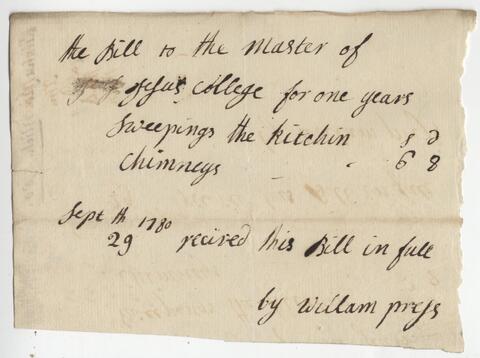 the Bill to the Master of
Jesus College for one years
Sweepings the Kitchin s d
Chimneys - - 6 8
Sept th 1780
29 recived this Bill in full
by Willam press